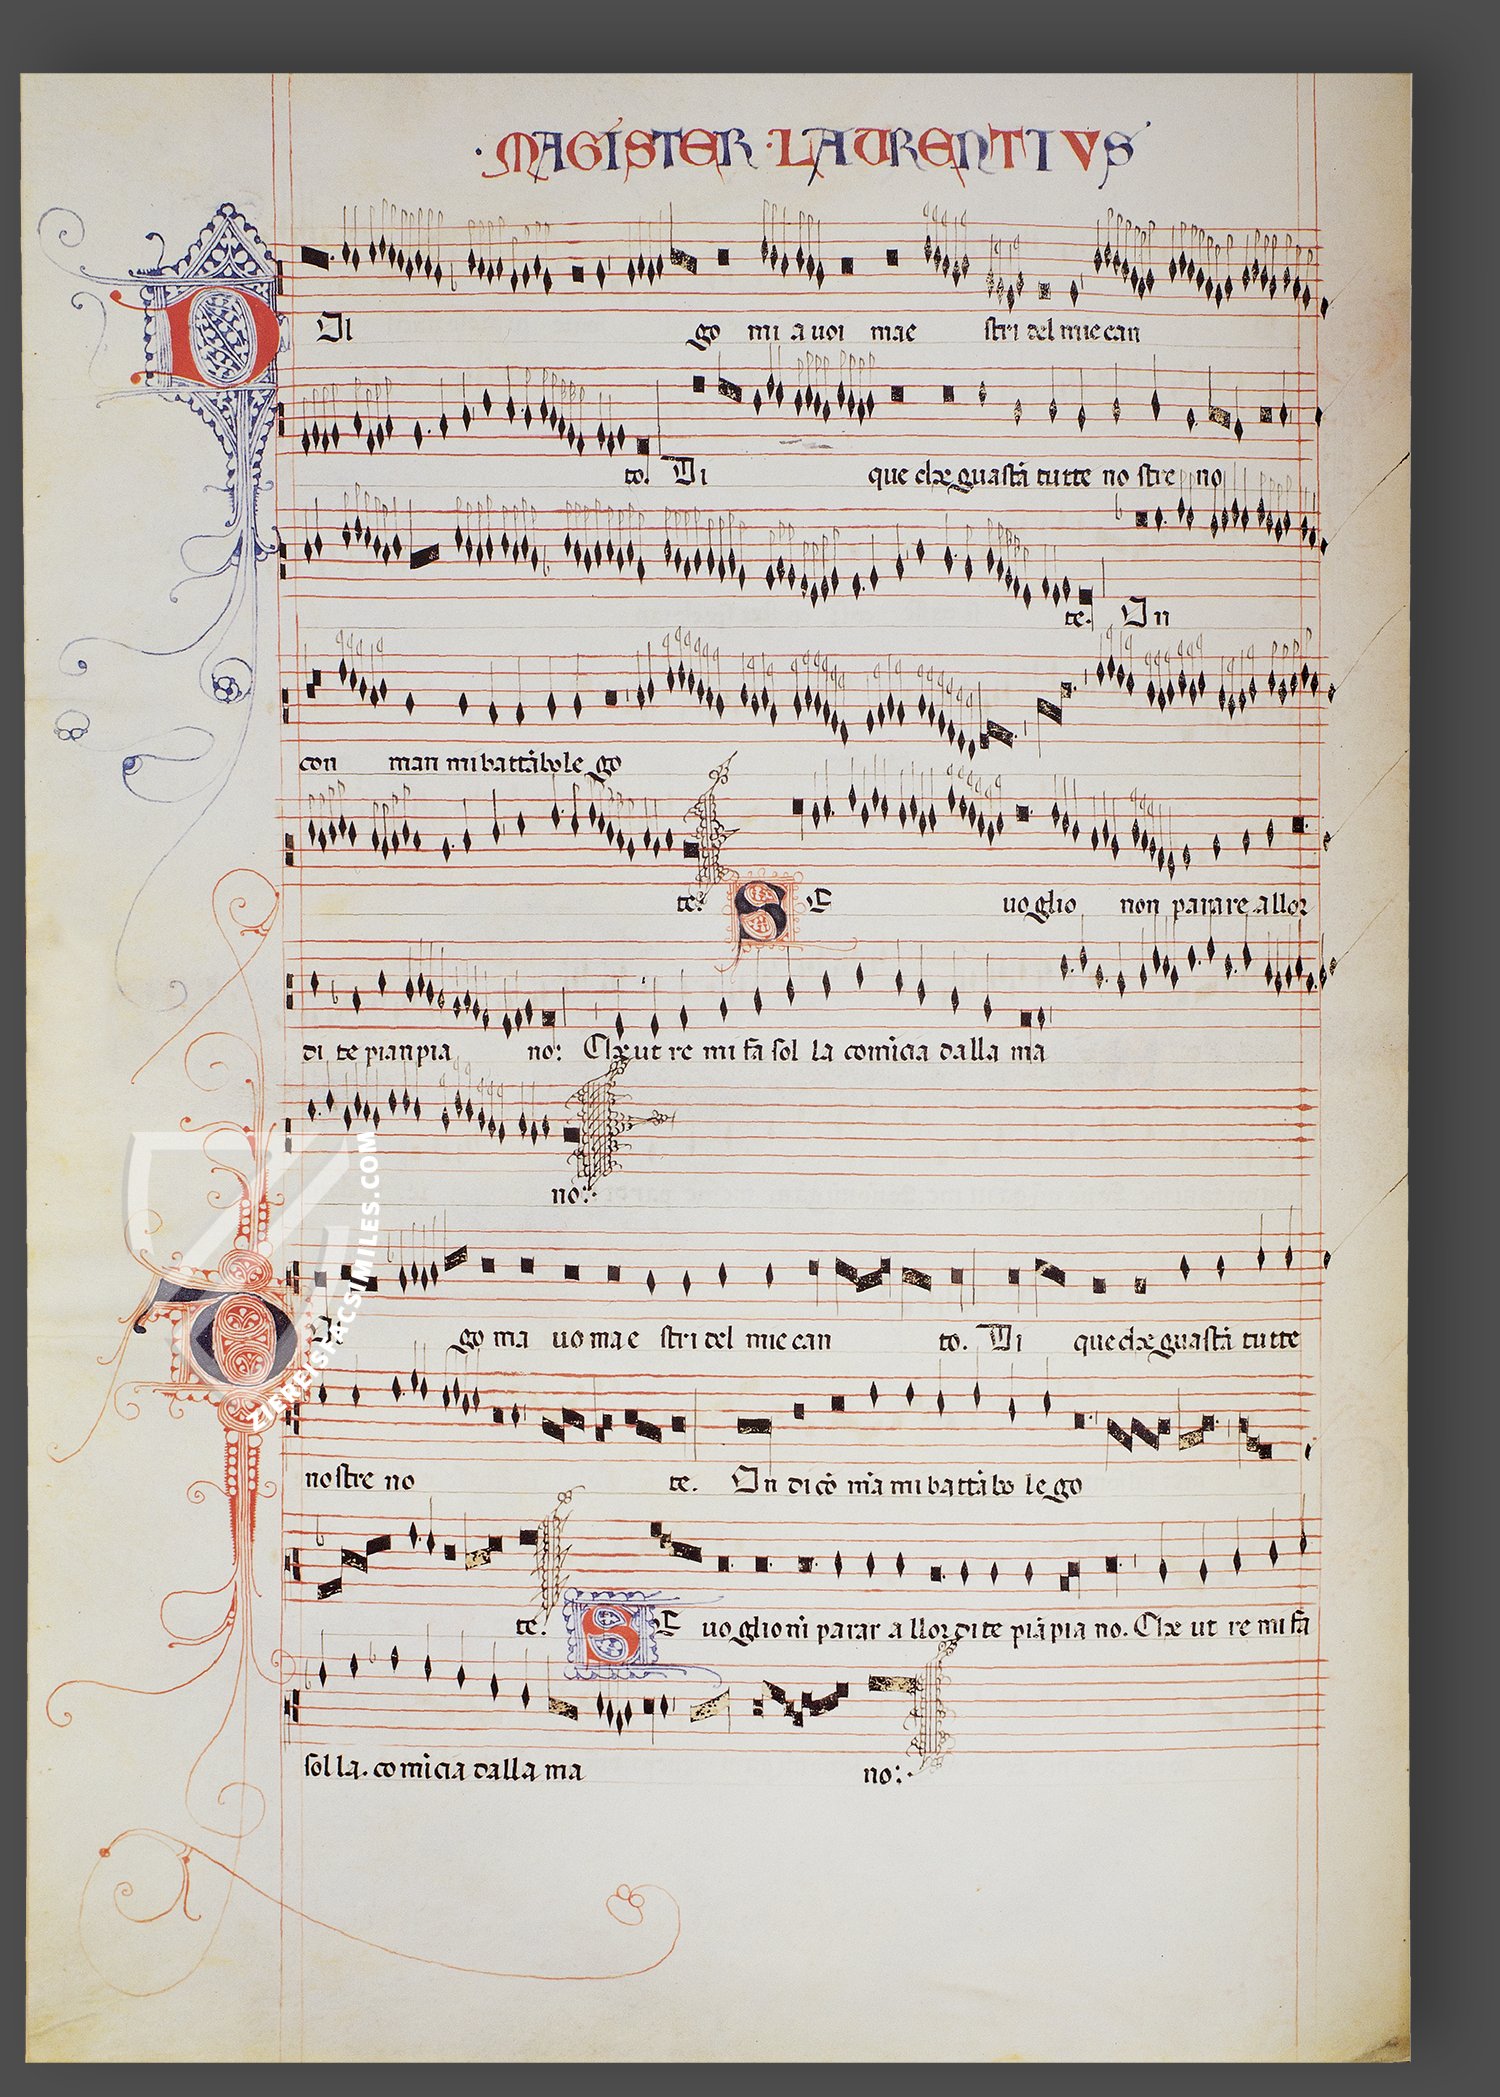 MAGISTER LAURENTIVS
DI go mi a voi mae stri del mie can
to. Di que che guastā tutte no stre no
te. On
con man mi battābole go
te: SE voglio non parare allor
di te pian pia no: Che ut re mi fa sol la comīcia dalla ma
no:
DI go ma vo mae stri del mie can to. Di que che guastā tutte
nostre no te. On di cō mā mi battābo le go
te: SE voglio nī parar a llor di te piā pia no. Che ut re mi fa
sol la. co mīcia dalla ma no:
ZIEREISFACSIMILES.COM